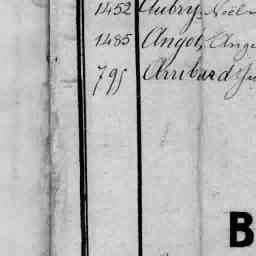 1452 Aubry, Noël
1485 Angot, Ange
795 Arribard
B